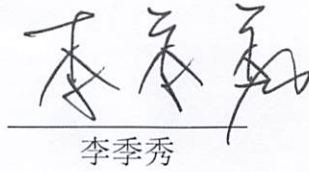 李季秀
李季秀